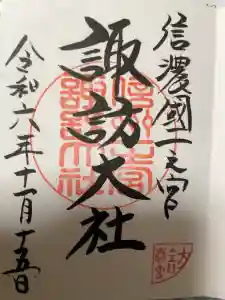 信濃國一之宮
諏訪大社
令和六年十一月十五日